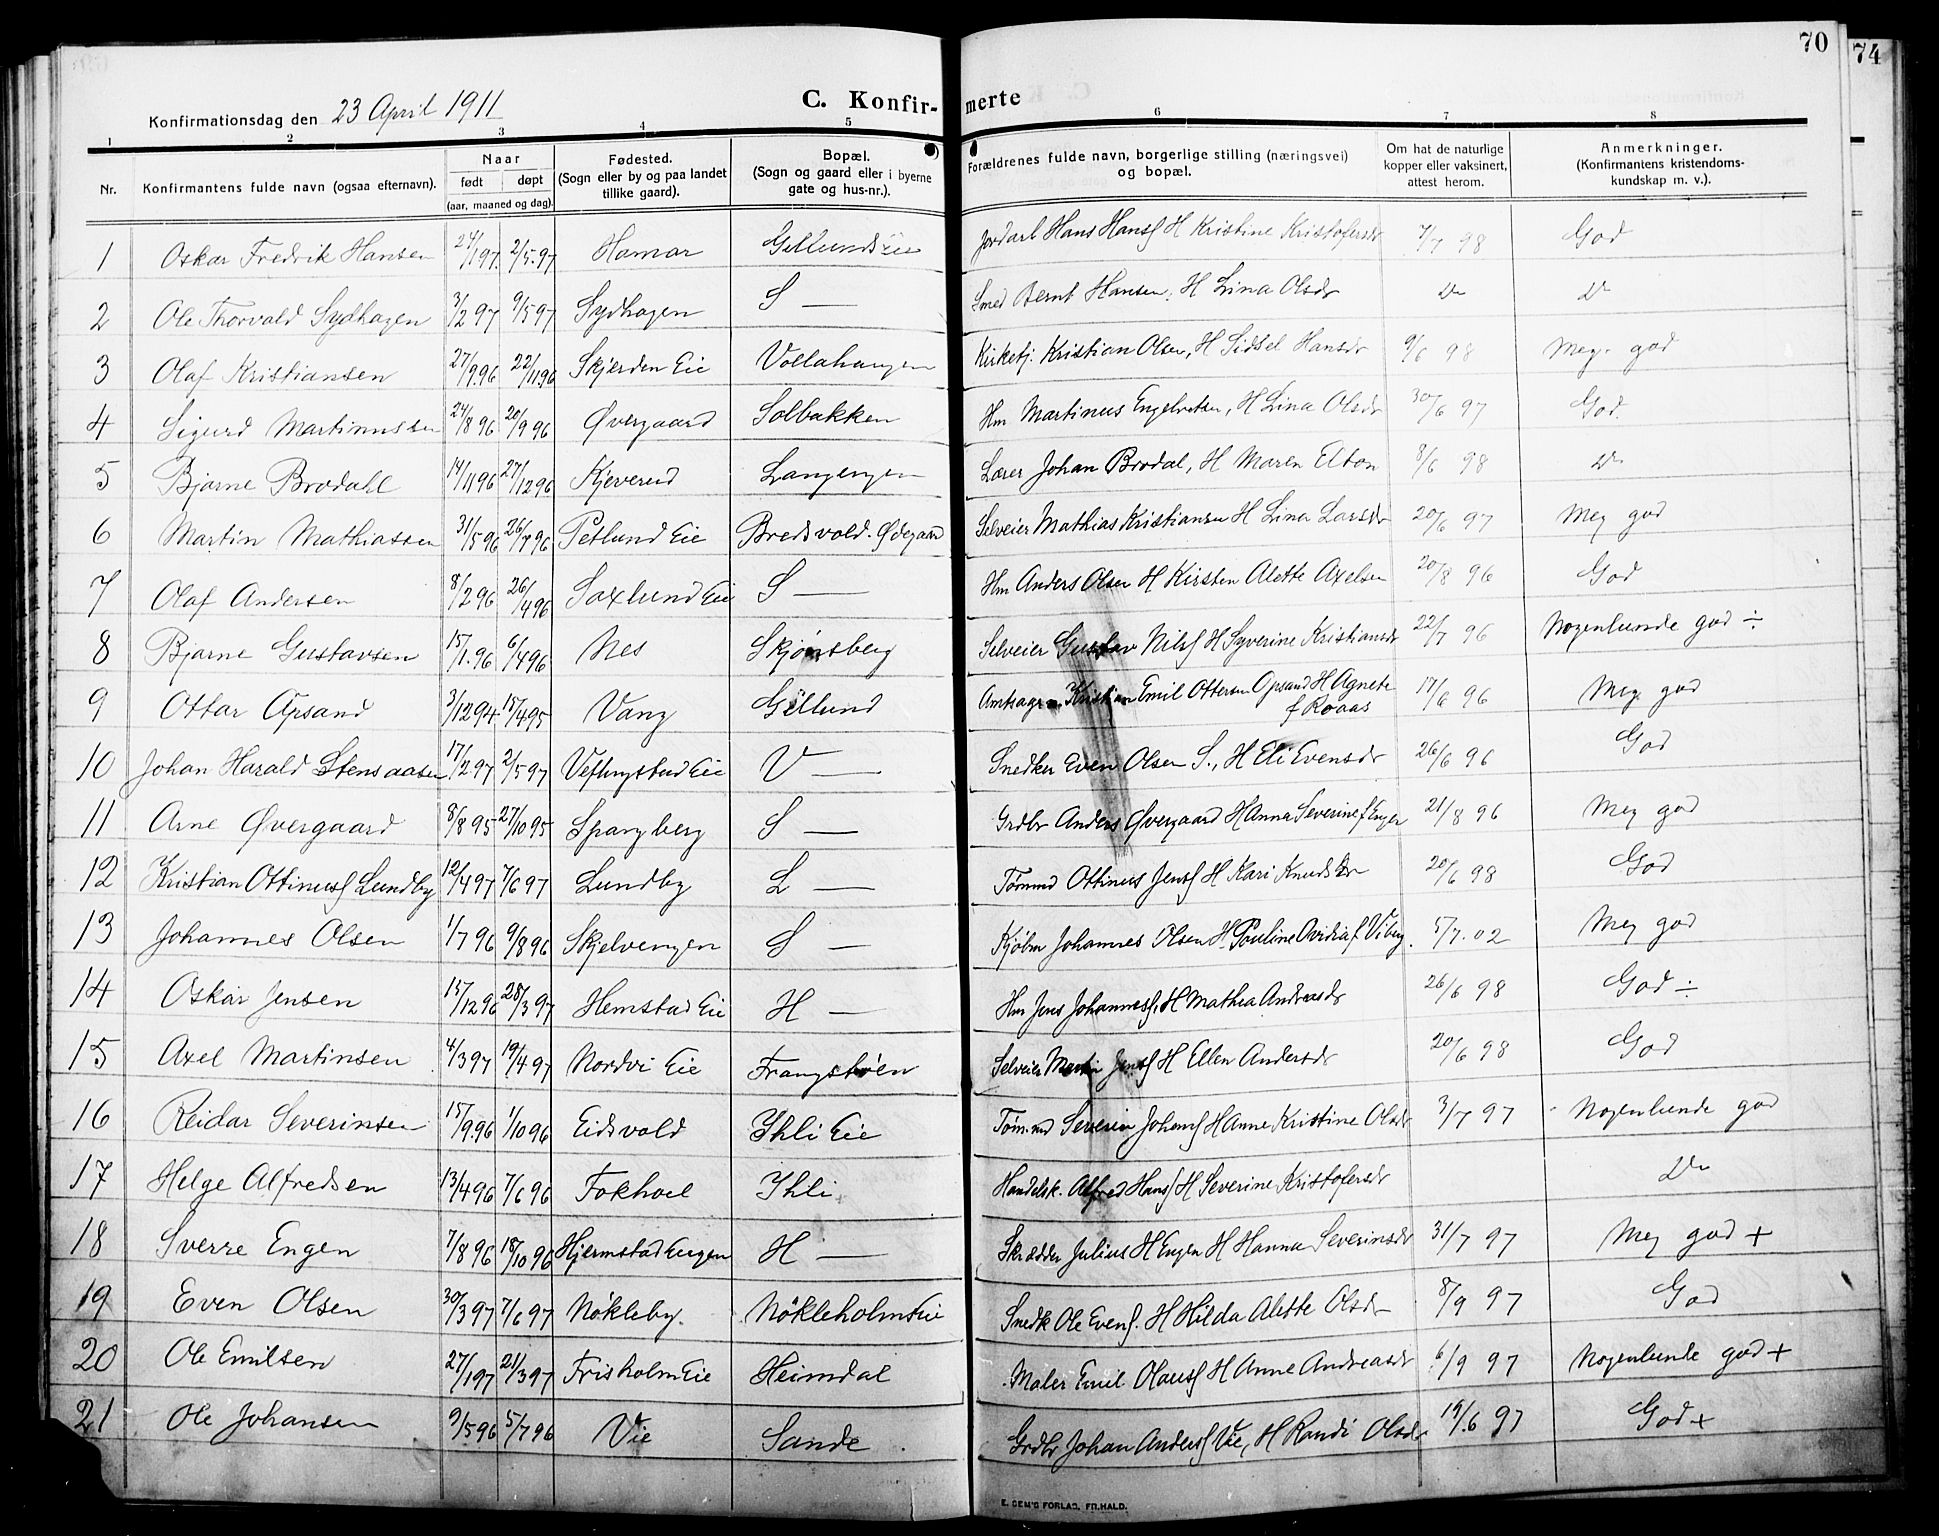 70
74
Konfirmationsdag den 23 April 1911
C. Konfir-merte
1 2 3 4 5 6 7 8
Nr. Konfirmantens fulde navn (ogsaa efternavn). Naar født døpt (aar, maaned og dag). Fødested. (Sogn eller by og paa landet tillike gaard). Bopæl. (Sogn og gaard eller i byerne gate og hus-nr.). Forældrenes fulde navn, borgerlige stilling (næringsvei) og bopæl. Om hat de naturlige kopper eller vaksinert, attest herom. Anmerkninger. (Konfirmantens kristendoms-kundskap m. v.).
1 Oskar Fredrik Hansen 24/1 97. 2/5.97 Hamar Gillunds Eie Jordarb Hans Hansf H Kristine Kristofersdr 7/7 98 God
2 Ole Thorvald Sydhagen 3/2 97 9/5 97 Sydhagen S — Smed Bernt Hansen, H Lina Olsdr Do Do
3 Olaf Kristiansen 27/9.96 22/11 96 Skjerden Eie Vollahaugen Kirketj. Kristian Olsen, H Sidsel Hansdr 9/6 98 Meg. god
4 Sigurd Martinussen 24/8 96 20/9 96 Øvergaard Solbakken Hm Martinus Engebretsen, H Lina Olsdr 30/6 97 God.
5 Bjarne Brodahl 14/11 96 27/12 96 Kjeverud Langengen Lærer Johan Brodal, H Maren Elton 8/6 98 Do
6 Martin Mathiassen 31/5 96 26/7 96 Petlund Eie Bredsvold. Ødegaard Selveier Mathias Kristiansen H Lina Larsdr 20/6 97 Meg god
7 Olaf Andersen 8/2 96 26/4 96 Saxlund Eie S — Hm Anders Olsen H Kirsten Alette Axelsen 20/8 96 God
8 Bjarne Gustavsen 15/1.96 6/4 96 Nes Skjønsberg Selveier Gustav Nilsf H Syverine Kristiansdr 22/7 96 Nogenlunde god ÷
9 Ottar Opsand 3/12 94 15/4 95 Vang Gillund Amtsagr. Kristian Emil Ottersen Opsand H Agnete f Roaas 17/6 96 Meg god
10 Johan Harald Stensaasen 17/2 97 2/5 97 Veflingstad Eie V — Snedker Even Olsen S., H Eli Evensdr 26/6 96 God
11 Arne Øvergaard 8/8 95 27/10 95 Spangberg S — Grdbr Anders Øvergaard H Anna Severine f Enger 21/8 96 Meg god
12 Kristian Ottinusf Lundby 12/4 97 7/6 97 Lundby L — Tømmd Ottinus Jensf H Kari Knudsdr 20/6 98 God
13 Johannes Olsen 1/7 96 9/8 96 Skjelvengen S — Kjøbm Johannes Olsen H Pauline Ovidia f Viberg. 5/7.02 Meg god
14 Oskar Jensen 15/12 96 28/3 97 Hemstad Eie H — Hm Jens Johannesf. H Mathea Andreasdr 26/6 98 God ÷
15 Axel Martinsen 4/3 97 19/4 97 Nordvi Eie Frangstøen Selveier Martin Jensf H Ellen Andersdr 20/6 98 God
16 Reidar Severinsen 15/9.96 1/10 96 Eidsvold Ihli Eie Tømmd Severin Johansf H Anne Kristine Olsdr 3/7 97 Nogenlunde god
17 Helge Alfredsen 13/4 96 7/6 96 Fokhoel Ihli Handelsk. Alfred Hansf H Severine Kristofersdr Do
18 Sverre Engen 7/8 96 18/10 96 Hjermstad Engen H — Skrædder Julius H Engen H Hanna Severinsdr 31/7 97 Meg god +
19 Even Olsen 30/3 97 7/6 97 Nøkleby. Nøkleholm Eie Snedk Ole Evenf. H Hilda Alette Olsdr 8/9 97 God
20 Ole Emilsen 27/1 97 21/3 97 Frisholm Eie Heimdal Maler Emil Olausf H Anne Andreasdr 6/9 97 Nogenlunde god +
21 Ole Johansen 9/5 96 5/7 96 Vie Sande Grdbr Johan Andersf Vie, H Randi Olsdr 19/6 97 God +
E. SEM'S FORLAG, FR.HALD.